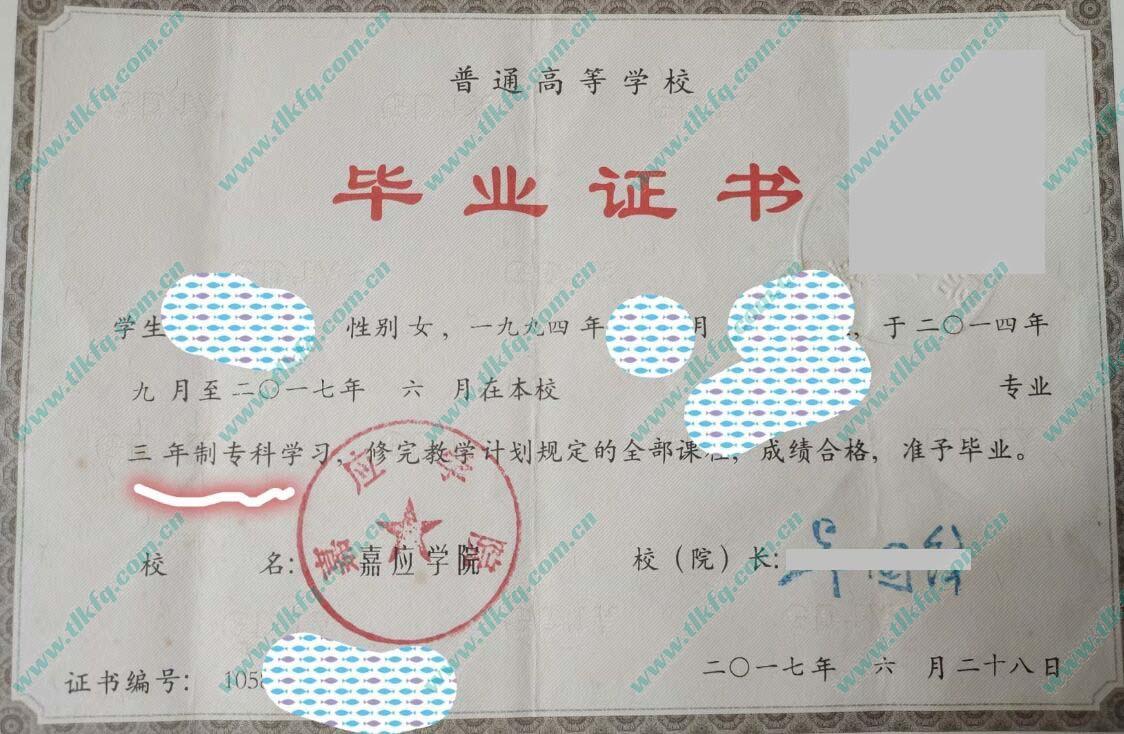 普通高等学校
毕业证书
学生 性别 女，一九九四 年 月 ，于 二〇一四年
九 月至 二〇一七年 六 月在本校 专业
三 年制专科学习，修完教学计划规定的全部课程，成绩合格，准予毕业。
校 名：嘉应学院 校（院）长：
嘉应学院
证书编号： 1058 二〇一七年 六 月二十八日
www.tlkfq.com.cn